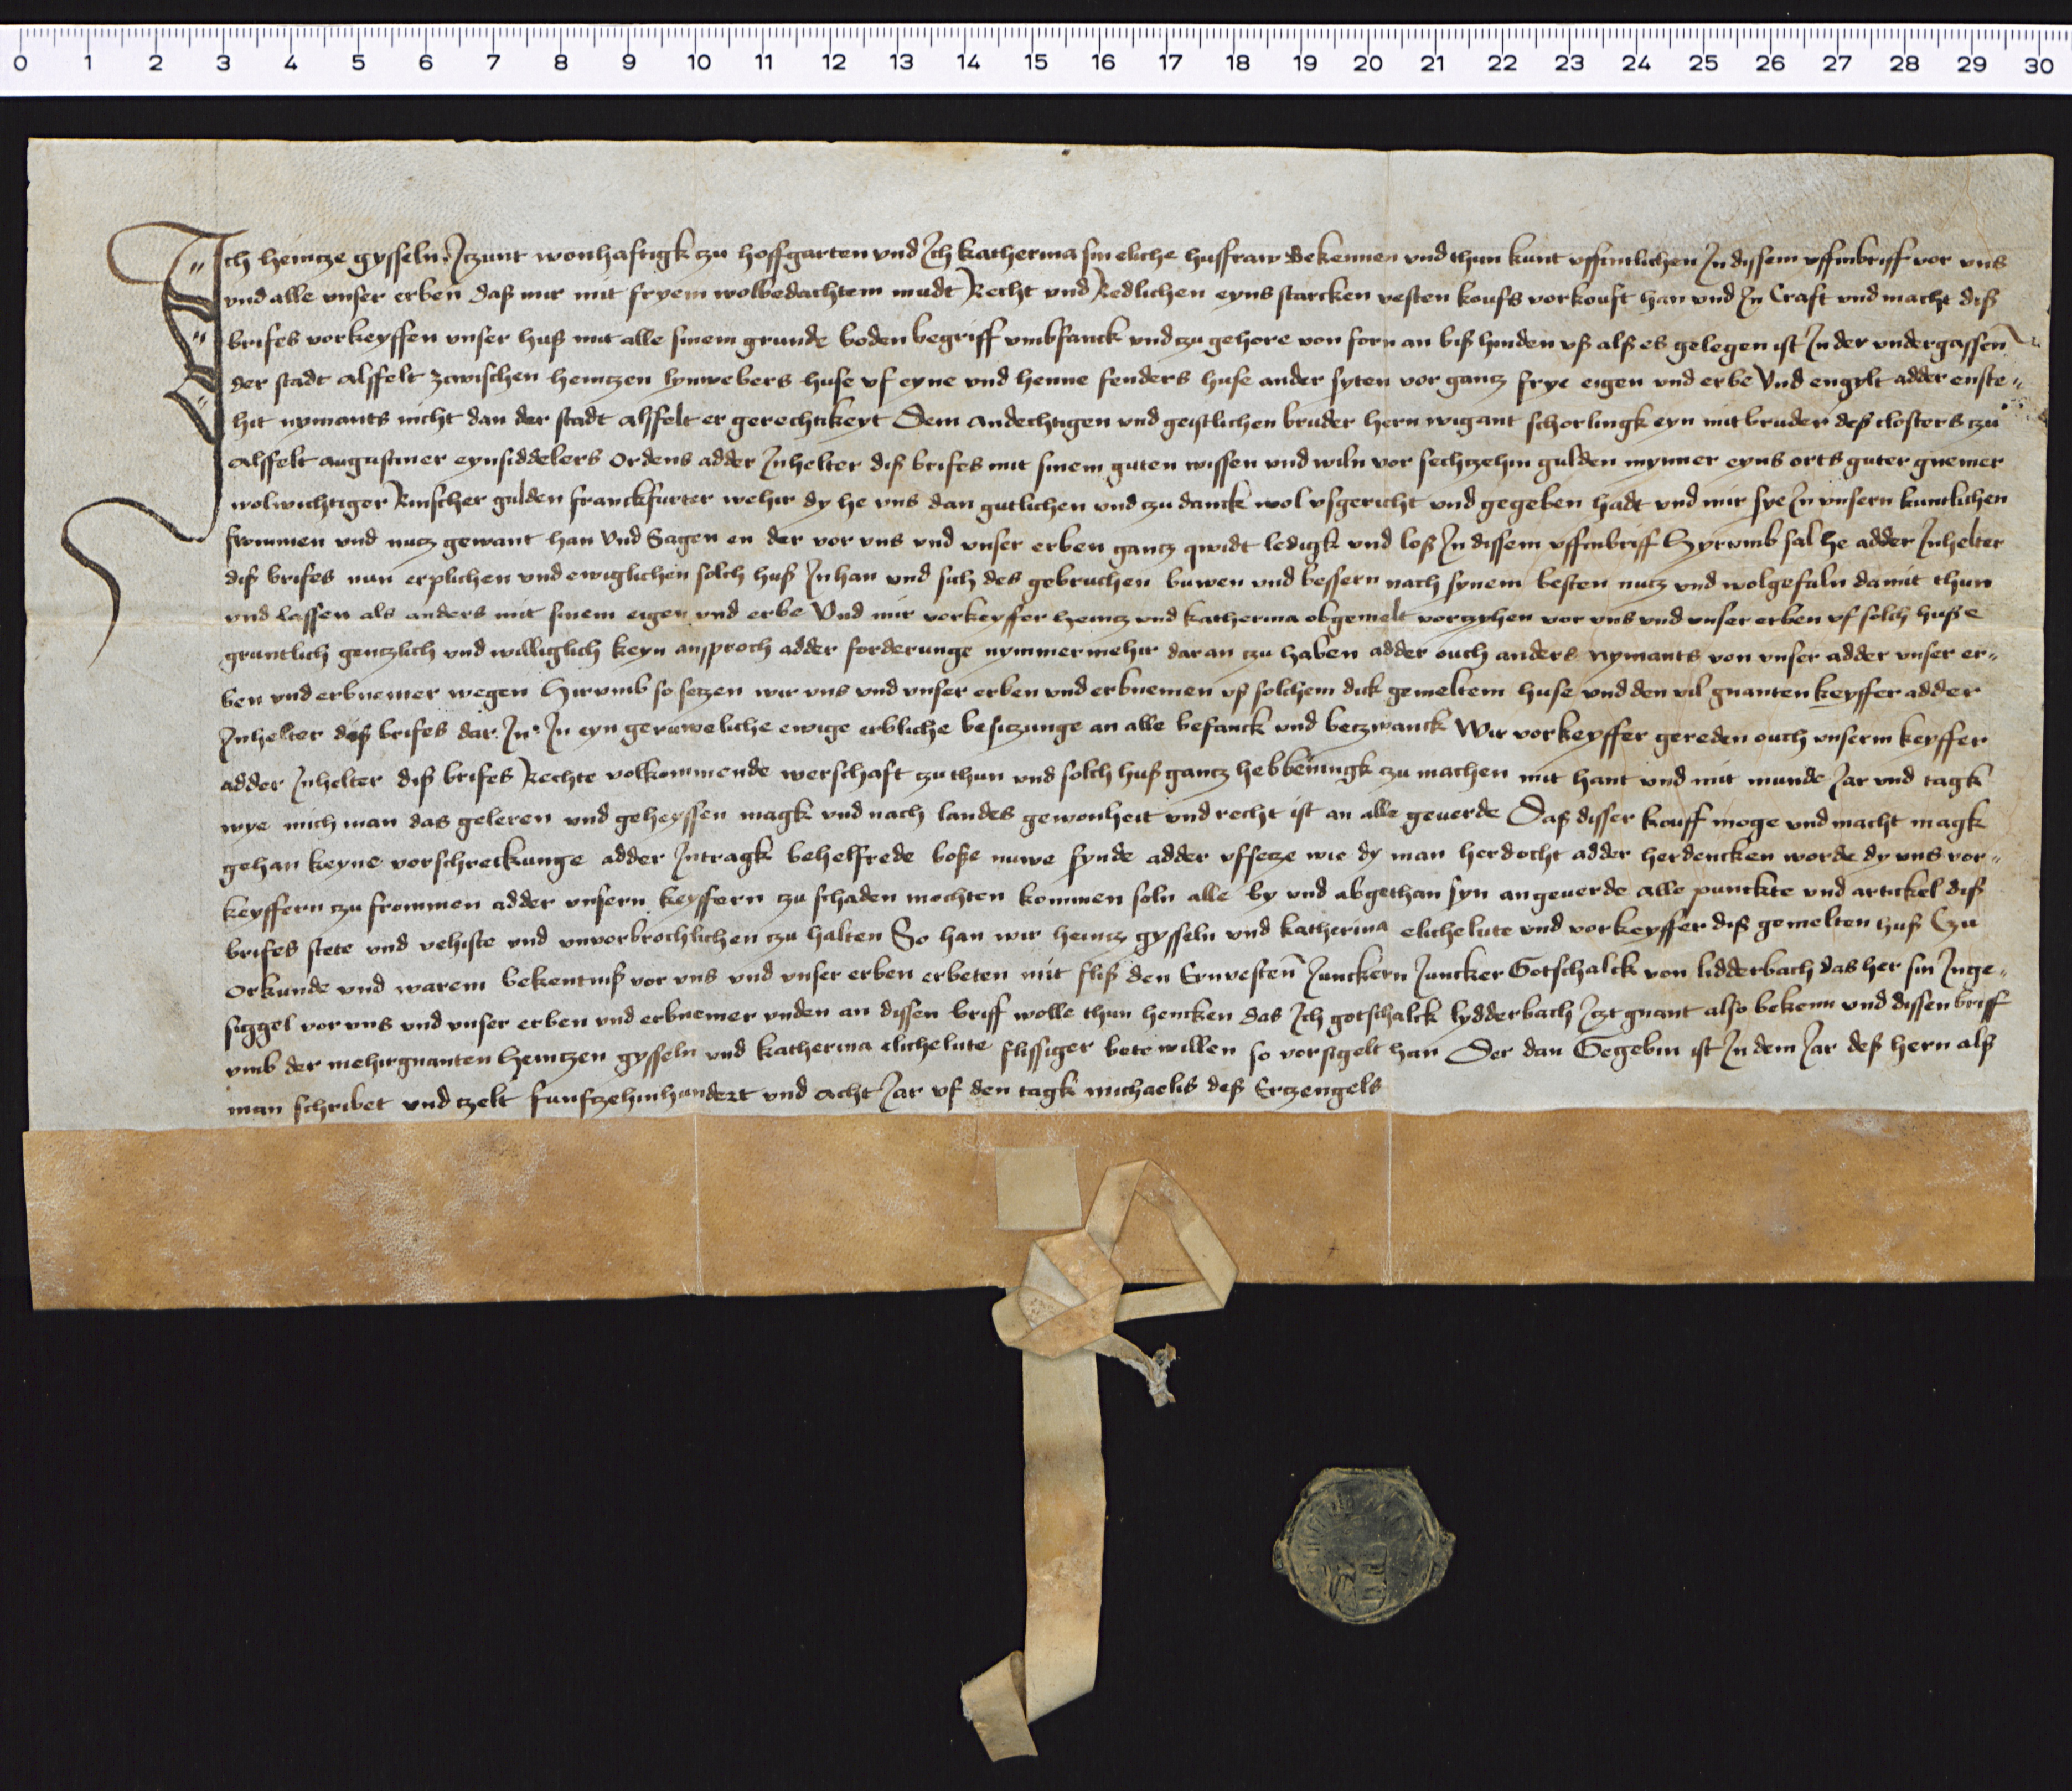 0 1 2 3 4 5 6 7 8 9 10 11 12 13 14 15 16 17 18 19 20 21 22 23 24 25 26 27 28 29 30
Ich heintze gysseln Itzunt wonhafftigk tzu hoffgarten vnd Ich katherina sin eliche huffraw Bekennen vnd thun kunt vffintlichen In dyssem vffinbriff vor vns
vnd alle vnser erben daß mir mit fryem wolbedachtem mudt Recht vnd Redlichen eyns starcken vesten koufs vorkouft han vnd In Craft vnd macht diß
brifes vorkeyffen vnser huß mit alle sinem grunde boden begriff vmbfanck vnd tzu gehore von forn an biß hinden vß alß es gelegen ist In der vndergassen
der stadt alffelt zwischen heintzen lynwebers huse vf eyne vnd henne fenders huse ander syten vor gantz frye eigen vnd erbe Vnd engylt adder enste
hit nymants nicht dan der stadt alffelt er gerechtikeyt Dem andechtigen vnd geistlichen bruder hern wigant schorlingk eyn mit bruder deß closters tzu
Alffelt augustiner eynsiddelers Ordens adder Inhelter diß brifes mit sinem guten wissen vnd wiln vor sechtzehin gulden mynner eyns orts guter gnemer
wolwichtiger Rinscher gulden franckfurter wehir dy he vns dan gutlichen vnd tzu danck wol vsgericht vnd gegeben hadt vnd mir sye In vnsern kuntlichen
frommen vnd nutz gewant han Vnd Sagen en der vor vns vnd vnser erben gantz qwidt ledigk vnd loß In dissem vffinbriff Hyrvmb sal he adder Inhelter
diß brifes nun erplichen vnd ewiglichen solch huß Inhan vnd sich des gebruchen buwen vnd bessern nach synem besten nutz vnd wolgefaln damit thun
vnd lassen als anders mit sinem eigen vnd erbe Vnd mir vorkeyffer heintz vnd katherina obgemelt vortzyhen vor vns vnd vnser erben vf solch huße
gruntlich gentzlich vnd williglich keyn ansproch adder forderunge nymmermehir daran tzu haben adder ouch anders nymants von vnser adder vnser er
ben vnd erbnemer wegen Hirvmb so setzen wir vns vnd vnser erben vnd erbnemen vß solchem dick gemeltem huse vnd den vil gnanten keyffer adder
Inhelter deß brifes dar In In eyn geruweliche ewige erbliche besitzunge an alle befanck vnd betzwanck Wir vorkeyffer gereden ouch vnserm keyffer
adder Inhelter diß brifes Rechte volkommende werschaft tzu thun vnd solch huß gantz hebbeningk tzu machen mit hant vnd mit munde Jar vnd tagk
wye mich man das geleren vnd geheyssen magk vnd nach landes gewonheit vnd recht ist an alle geuerde Daß disser kouff moge vnd macht magk
gehan keyne vorschreckunge adder Intragk behelfrede boße nuwe fynde adder vffsetze wie dy man herdocht adder herdencken worde dy vns vor
keyffern tzu frommen adder vnsern keyffern tzu schaden mochten kommen soln alle by vnd abgethan syn an geuerde alle punckte vnd artickel diß
brifes stete vnd vehiste vnd vnvorbrochlichen tzu halten So han wir heintz gysseln vnd katherina elichelute vnd vorkeyffer diß gemelten huß Tzu
Orkunde vnd warem bekentniß vor vns vnd vnser erben erbeten mit fliß den Ernvesten Junckern Juncker Gotschalck von lidderbach das her sin Inge
siggel vor vns vnd vnser erben vnd erbnemer vnden an dissen briff wolle thun hencken das Ich gotschalck lydderbach Itzt gnant also bekenn vnd dissen briff
vmb der mehirgnanten Heintzen gysseln vnd katherina elichelute flissiger bete willen so vorsigelt han Der dan Gegebin ist In dem Jar deß hern alß
man schribet vnd tzelt funftzehinhundert vnd acht Jar vf den tagk michaelis deß Ertzengels